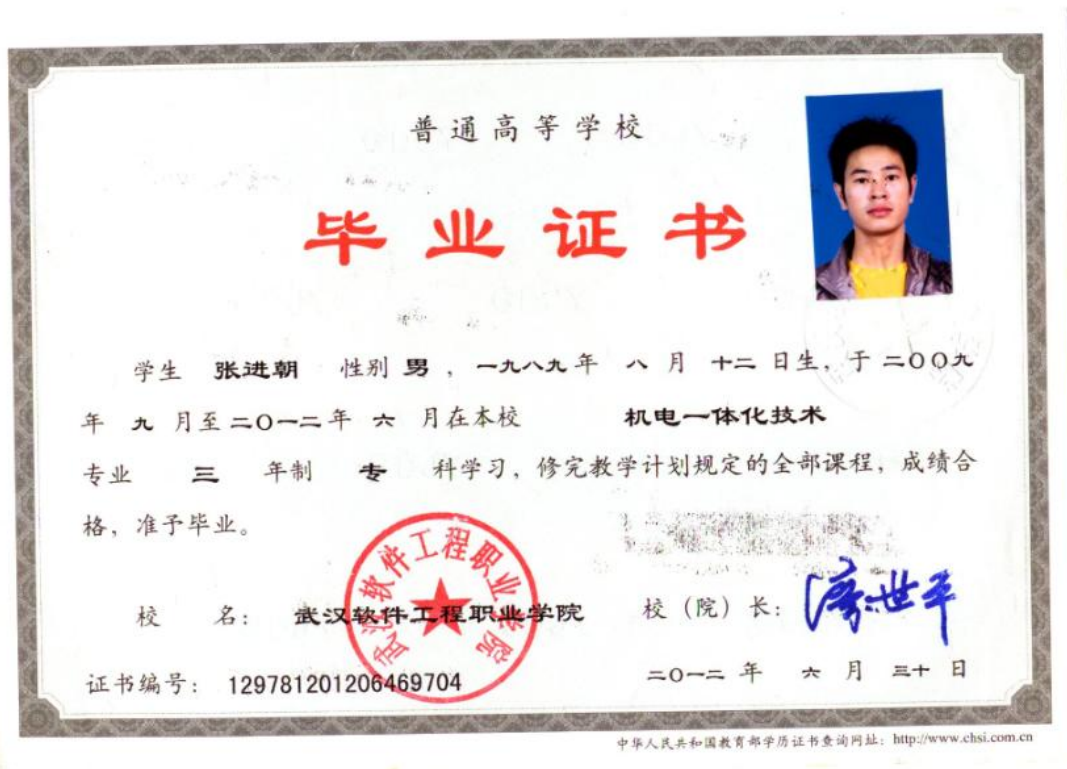 普通高等学校
毕业证书
学生 张进朝 性别 男 ，一九八九年 八 月 十二 日生，于 二〇〇九
年 九 月至 二〇一二 年 六 月在本校 机电一体化技术
专业 三 年制 专 科学习，修完教学计划规定的全部课程，成绩合
格，准予毕业。
武汉软件工程职业学院
校 名： 武汉软件工程职业学院 校（院）长：
证书编号： 129781201206469704 二〇一二 年 六 月 三十 日
中华人民共和国教育部学历证书查询网址：http://www.chsi.com.cn